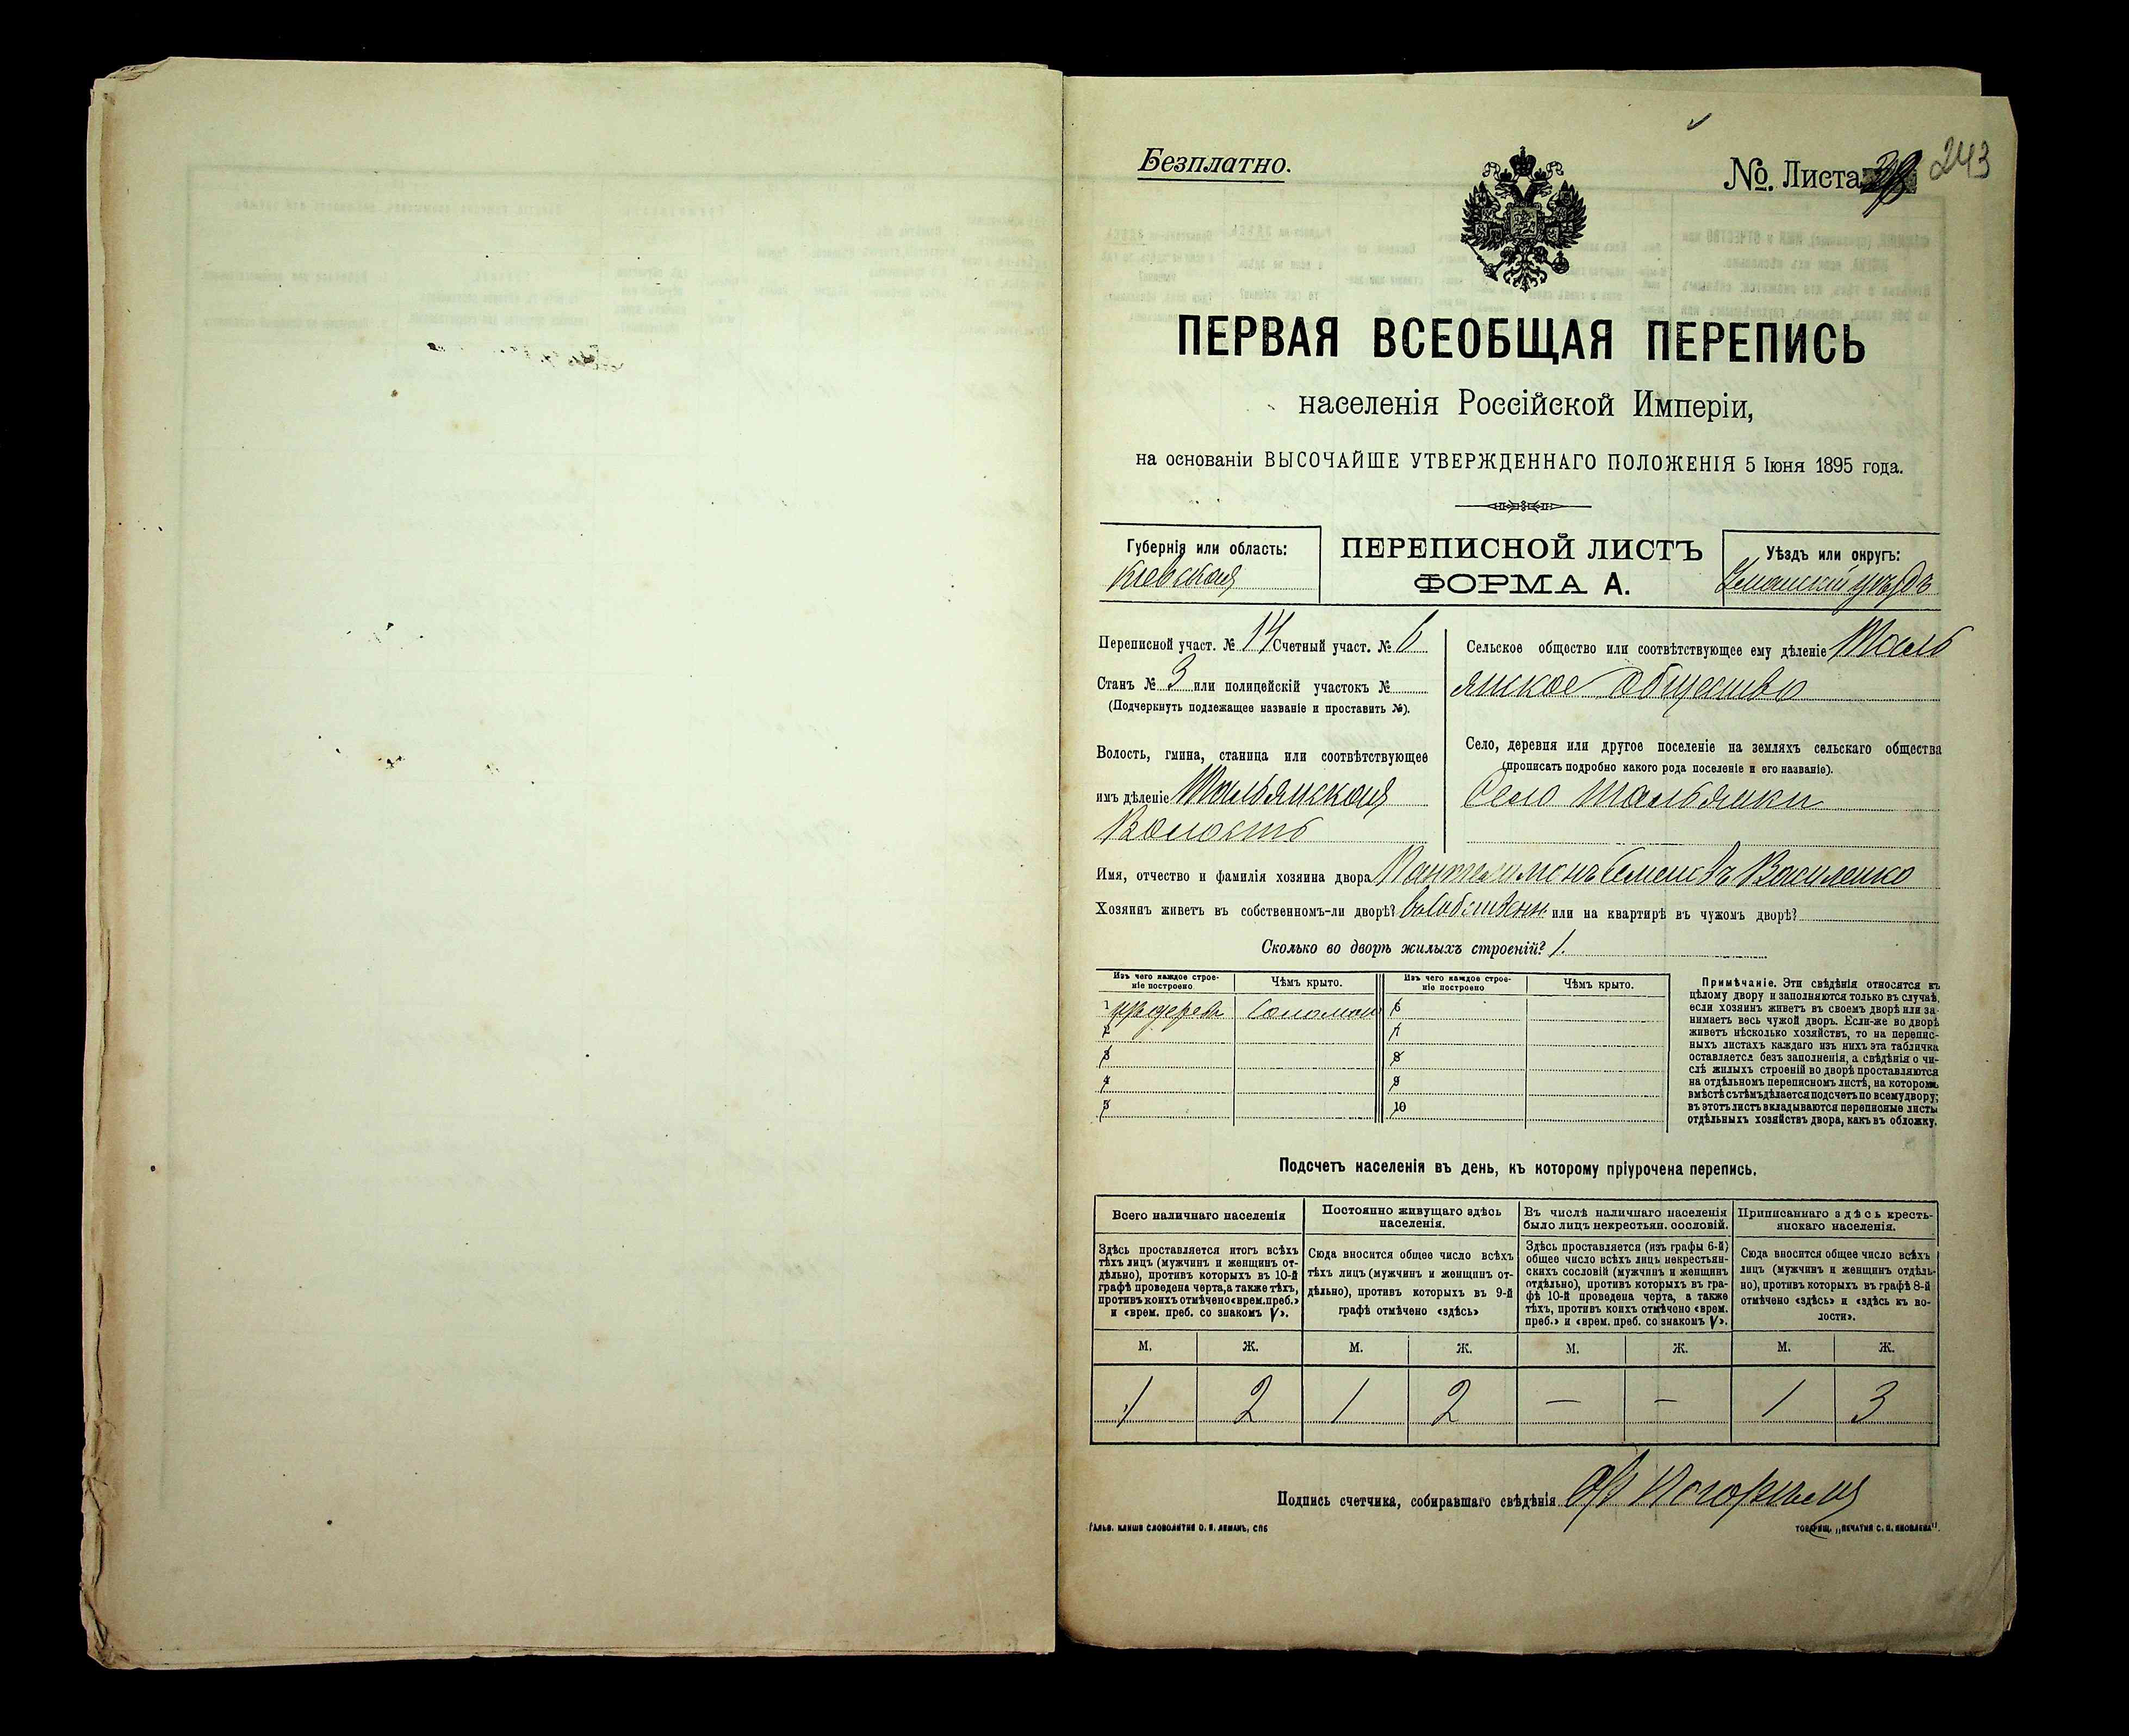 Безплатно.
№. Листа 243
ПЕРВАЯ ВСЕОБЩАЯ ПЕРЕПИСЬ
населенія Россійской Имперіи,
на основаніи ВЫСОЧАЙШЕ УТВЕРЖДЕННАГО ПОЛОЖЕНІЯ 5 Іюня 1895 года.
Губернія или область:
Кіевская
ПЕРЕПИСНОЙ ЛИСТЪ
ФОРМА А.
Уѣздъ или округъ:
Уманскій уѣздъ
Переписной участ. № 14 Счетный участ. № 6
Станъ № 3 или полицейскій участокъ №
(Подчеркнуть подлежащее названіе и проставить №).
Волость, гмина, станица или соотвѣтствующее
имъ дѣленіе Тальянская
Волость
Сельское общество или соотвѣтствующее ему дѣленіе Таль
янское общество
Село, деревня или другое поселеніе на земляхъ сельскаго общества
(прописать подробно какого рода поселеніе и его названіе).
Село Тальянки
Имя, отчество и фамилія хозяина двора Пантелимонъ Семеновъ Василенко
Хозяинъ живетъ въ собственномъ-ли дворѣ? въ собственн. или на квартирѣ въ чужомъ дворѣ?
Сколько во дворѣ жилыхъ строеній? 1.
Изъ чего каждое строе-
ніе построено
Чѣмъ крыто.
Изъ чего каждое строе-
ніе построено
Чѣмъ крыто.
1 Соломой 6
2 7
3 8
4 9
5 10
Примѣчаніе. Эти свѣдѣнія относятся къ
цѣлому двору и заполняются только въ случаѣ,
если хозяинъ живетъ въ своемъ дворѣ или за-
нимаетъ весь чужой дворъ. Если-же во дворѣ
живетъ нѣсколько хозяйствъ, то на перепис-
ныхъ листахъ каждаго изъ нихъ эта табличка
оставляется безъ заполненія, а свѣдѣнія о чи-
слѣ жилыхъ строеній во дворѣ проставляются
на отдѣльномъ переписномъ листѣ, на которомъ
вмѣстѣ съ тѣмъ дѣлается подсчетъ по всему двору;
въ этотъ листъ вкладываются переписные листы
отдѣльныхъ хозяйствъ двора, какъ въ обложку.
Подсчетъ населенія въ день, къ которому пріурочена перепись.
Всего наличнаго населенія
Здѣсь проставляется итогъ всѣхъ
тѣхъ лицъ (мужчинъ и женщинъ от-
дѣльно), противъ которыхъ въ 10-й
графѣ проведена черта, а также тѣхъ,
противъ коихъ отмѣчено «врем. преб.»
и «врем. преб. со знакомъ V».
Постоянно живущаго здѣсь
населенія.
Сюда вносится общее число всѣхъ
тѣхъ лицъ (мужчинъ и женщинъ от-
дѣльно), противъ которыхъ въ 9-й
графѣ отмѣчено «здѣсь»
Въ числѣ наличнаго населенія
было лицъ некрестьян. сословій.
Здѣсь проставляется (изъ графы 6-й)
общее число всѣхъ лицъ некрестьян-
скихъ сословій (мужчинъ и женщинъ
отдѣльно), противъ которыхъ въ гра-
фѣ 10-й проведена черта, а также
тѣхъ, противъ коихъ отмѣчено «врем.
преб.» и «врем. преб. со знакомъ V».
Приписаннаго здѣсь кресть-
янскаго населенія.
Сюда вносится общее число всѣхъ
лицъ (мужчинъ и женщинъ отдѣль-
но), противъ которыхъ въ графѣ 8-й
отмѣчено «здѣсь» и «здѣсь къ во-
лости».
М. Ж. М. Ж. М. Ж. М. Ж.
1 2 1 2 — — 1 3
Подпись счетчика, собиравшаго свѣдѣнія
Гальв. клише словолитни О. И. Леманъ, СПБ
Товарищ. „Печатня С. П. Яковлева".